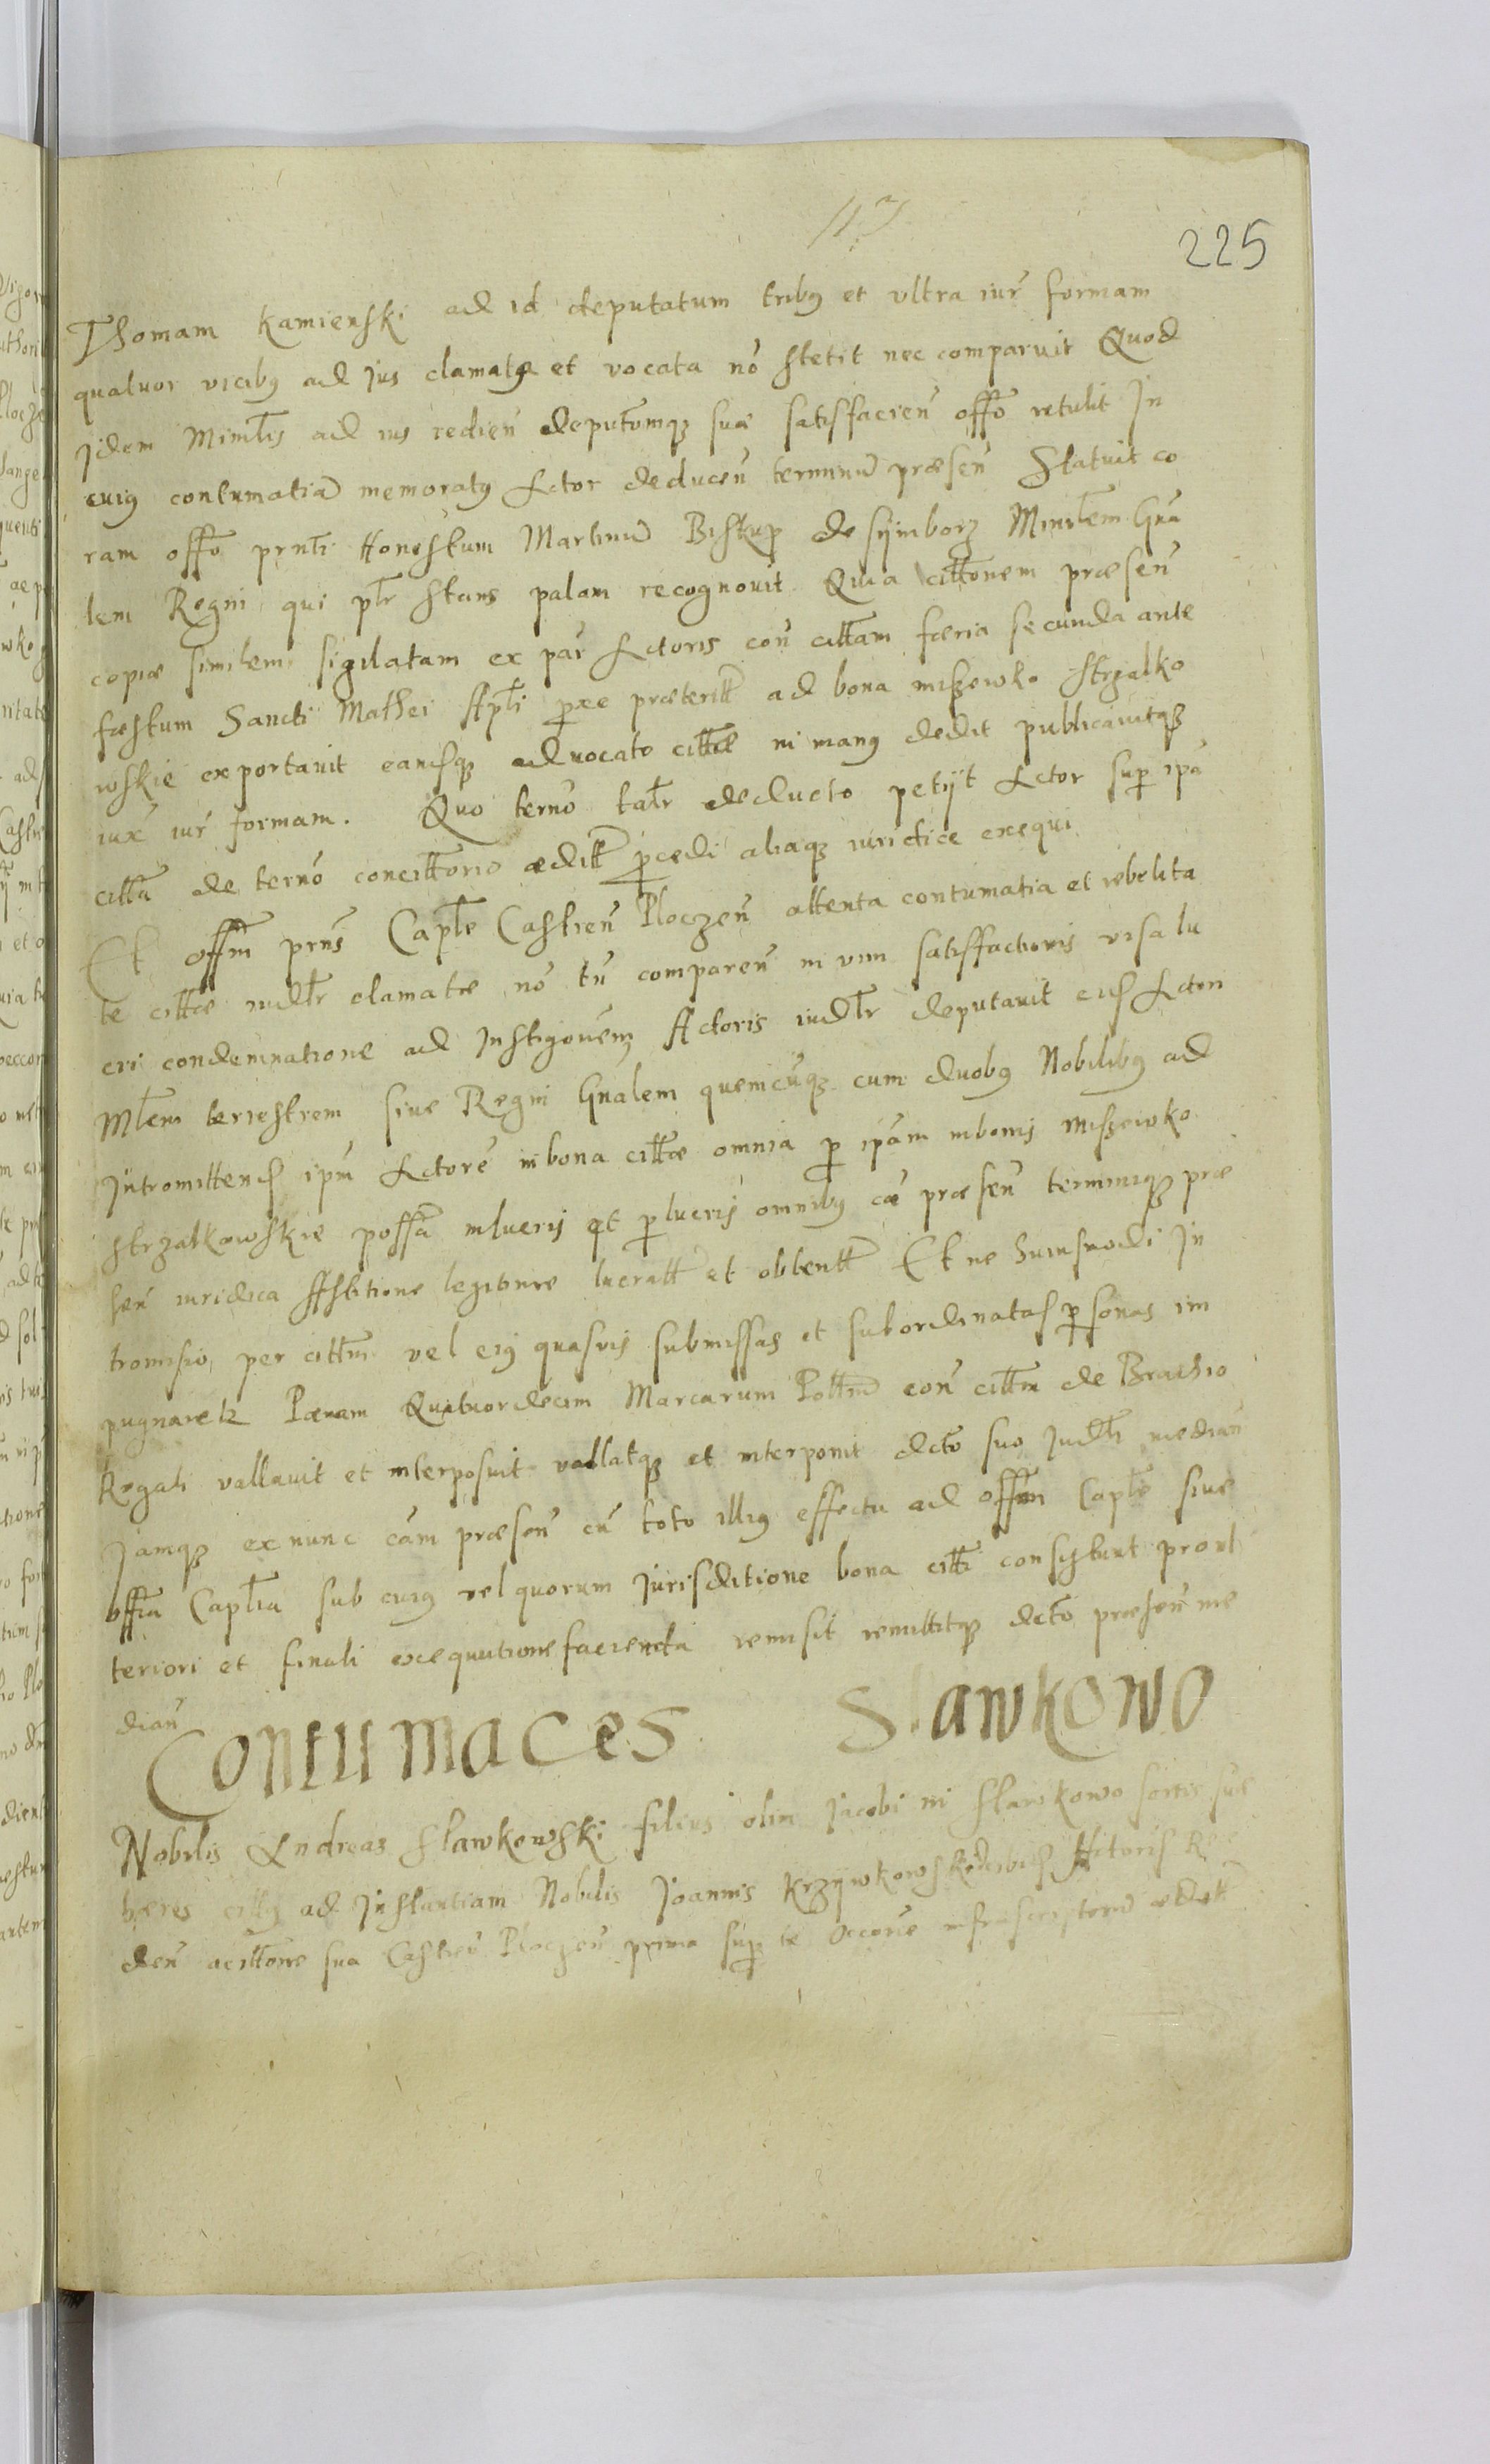 117
225
Thomam Kamienski ad id deputatum tribq et vltra iur̃ formam
quatuor vicibq ad Jus clamata et vocata nõ stetit nec comparuit Quod
Jdem Minĩlis ad ius rediеñ deputõmqȝ suæ satisfacieñ offõ retulit Jn
cuiq contumatiã memoratq Actor deduceñ terminũ præseñ Statuit co
ram offõ prñti Honestum Martinũ Biskup de Sijmborz Minĩlem Gñа
lem Regni qui pl̃r stans palam recognouit Quia citt̃onem præseñ
copiæ similem sigilatam ex par̃ Actoris coñ citt̃am færia secunda ante
fæstum Sancti Mathei Apl̃i pxe præterit̃t ad bona miszewko Strzalko
wskie exportauit eamsqȝ aduocato citt̃æ in manq dedit publicauitqȝ
iux̃ iur̃ formam. Quo termõ tal̃r deducto petijt Actor sup ipã
citt̃ã de termõ concitt̃orio ædit̃t pcedi aliaqȝ iuridice exequi
Et offm̃ prñs Capl̃e Castreñ Ploczeñ attenta contumatia et rebelita
te citt̃æ iudl̃r clamatæ nõ tñ compareñ in vim satisfactionis visa lu
cri condemnatione ad Jnstigõuẽm Actoris iudl̃r deputauit eid Actori
Ml̃em terrestrem siue Regni Gñalem quemcũqȝ cum duobq Nobilibq ad
Jntromittend ipm̃ Actorẽ in bona citt̃æ omnia p ipãm in bonis Miszewko
Strzalkowskie possã in lucris et p lucris omnibq cã præseñ terminiqȝ præ
señ iuridica Astitione legitime lucrat̃t et obtent̃t Et ne huiusmodi Jn
tromisio per citt̃m vel eiq quasvis submissas et subordinatas psonas im
pugnaretr Pænam Quatuordecim Marcarum Poll̃m coñ citt̃m de Brachio
Regali vallauit et interposuit vallatqȝ et interponit dcto suo Judl̃i mediañ
Jamqȝ ex nunc cãm præseñ cũ toto illiq effectu ad offm̃ Capl̃e siue
offia Capl̃ia sub cuiq vel quorum Jurisditione bona citt̃i consistunt pro vl
teriori et finali exequutione facienda remisit remittitqȝ dcto præseñ me
diañ
Contumaces Slawkowo
Nobilis Andreas Slawkowski filius olim Jacobi in Slawkowo sortis suæ
hæres citt̃q ad Jnstantiam Nobilis Joannis Krzywkowski
deñ a citt̃one sua Castreñ Ploczeñ prima sup te